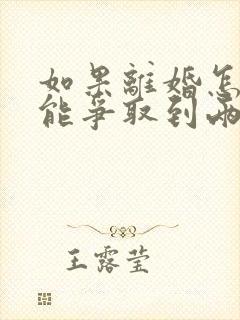 如果離婚怎
能爭取到兩
王露莹